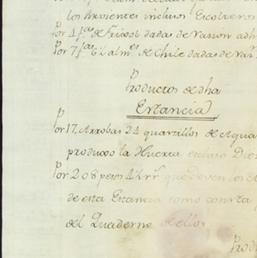 los sirvientes inclusos
Por 4 f.as de frixol dadas de racion
Por 7 f.as 6 1/2 alm.s de Chile dadas de
Productos de dha
Estancia
Por 17 Arrobas 24 quartillos de Agua
produxo la Huerta
Por 208 pesos 4 rr.s que deven los
de esta Estancia como consta
del Quaderno de ellos